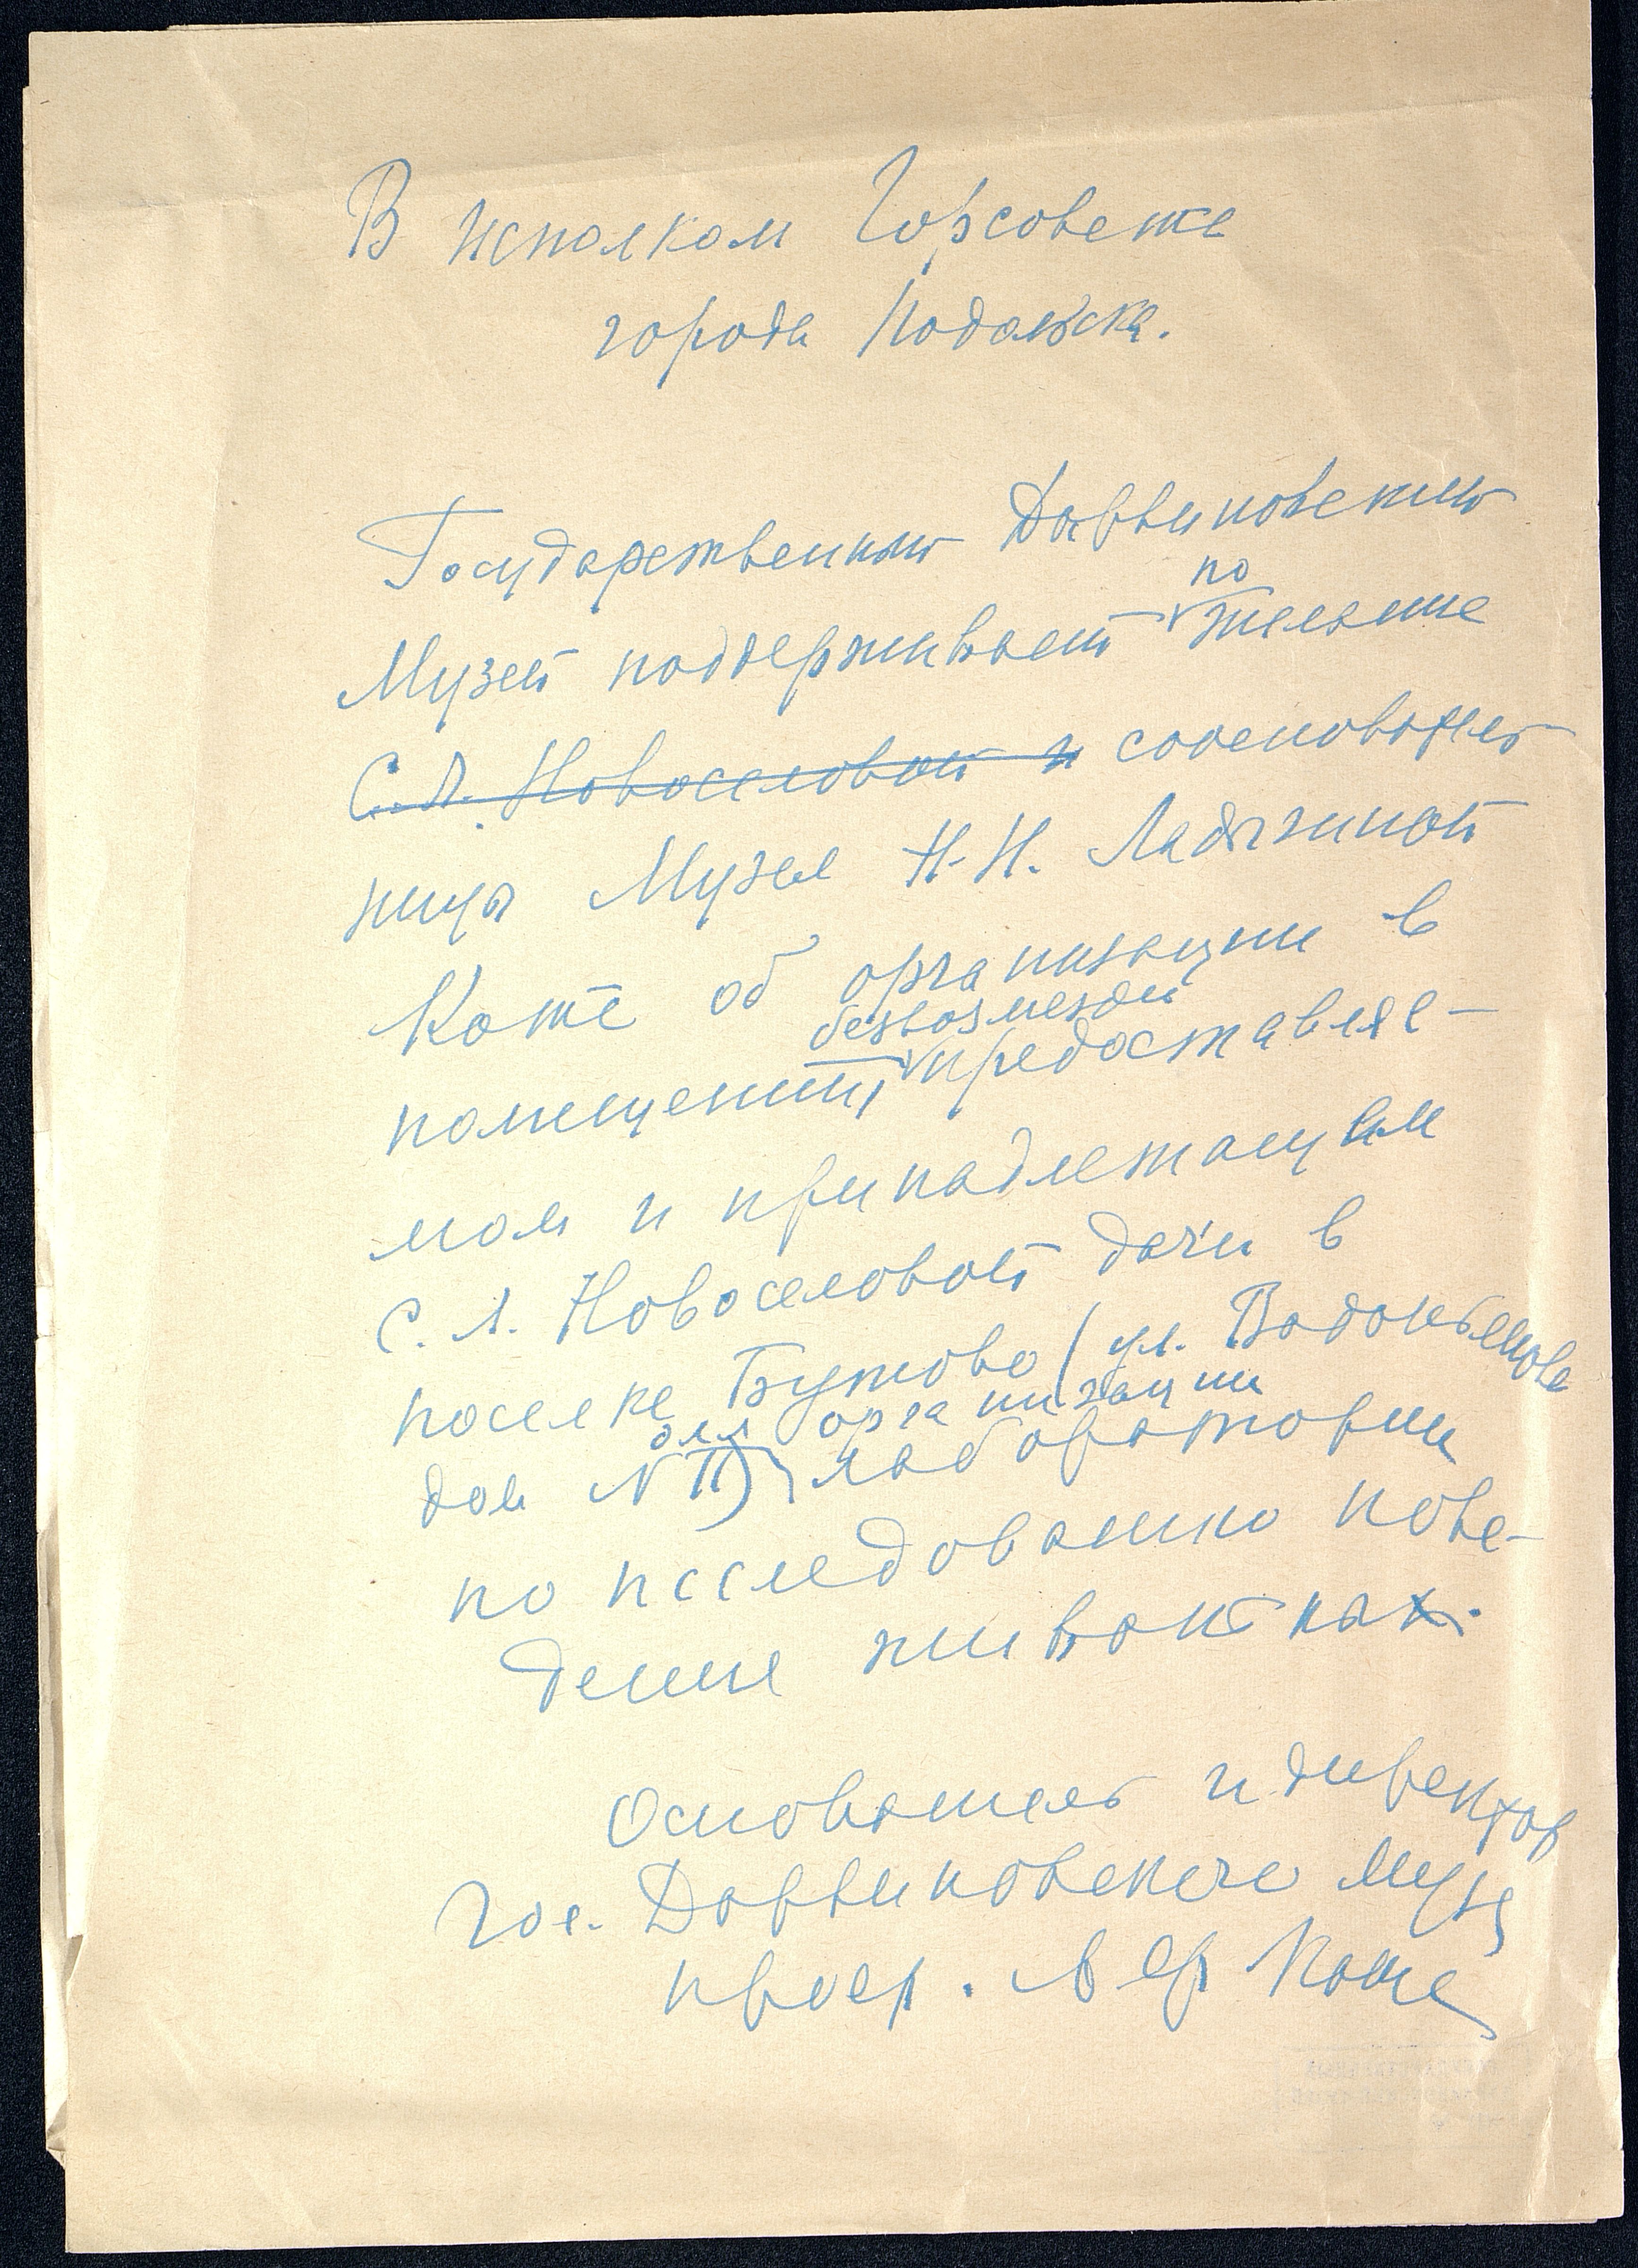 В исполком Горсовета
города Подольска.
Государственный Дарвиновский
по
Музей поддерживает желание
С.Л. Новоселовой и сооснователь
ницы Музея Н.Н. Ладыгиной
Котс об организации в
безвозмездн
помещении, предоставляе-
мом и принадлежащим
С. Л. Новоселовой дачи в
поселке Бутово (ул.
для организации
дом N II) лаборатории
по исследованию пове-
дение животных.
Основатель и директор
Гос. Дарвиновского Музея
проф. А Ф Котс